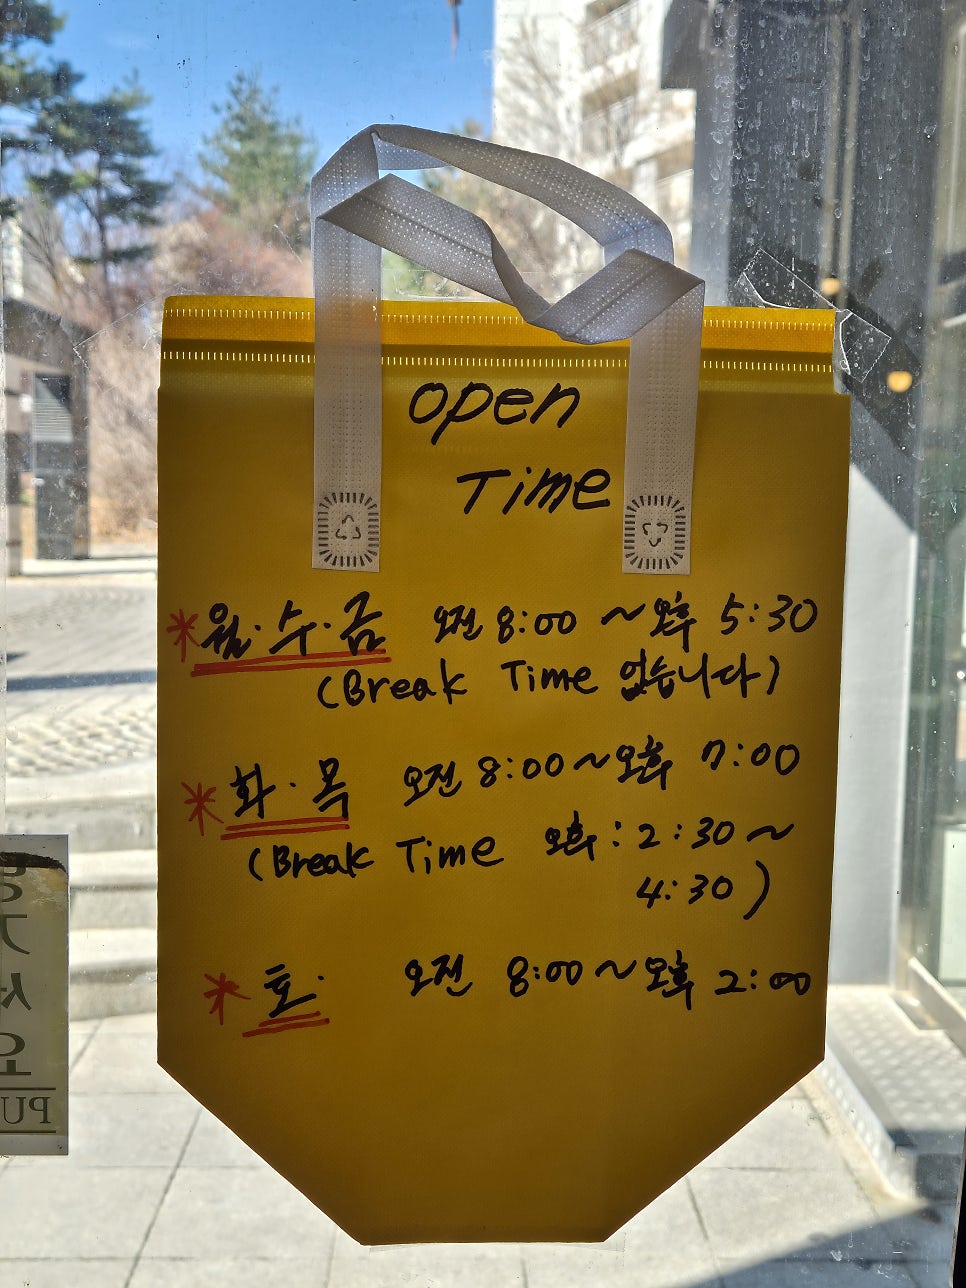 open
Time
*월·수·금 오전 8:00 ~ 오후 5:30
(Break Time 없습니다)
*화·목 오전 8:00 ~ 오후 7:00
(Break Time 오후 : 2:30 ~
4:30)
*토· 오전 8:00 ~ 오후 2:00
PU